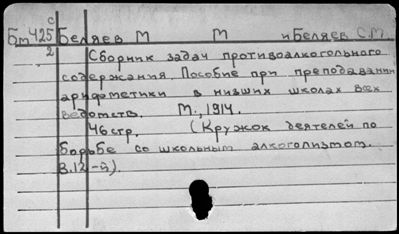 с
Бт425 Беляев М М и Беляев С.М.
2 Сборник задач противоалкогольного
содержания. Пособие при преподавании
арифметики в низших школах всех
ведомств. М., 1914.
46 стр. (Кружок деятелей по
борьбе со школьным алкоголизмом.
В.12-й).